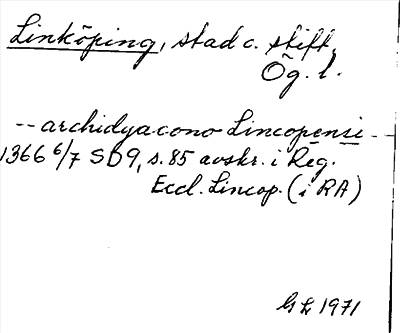 Linköping, stad o. stift,
Ög. l.
-- archidyacono Lincopensi --
1366 6/7 SD9, s. 85 avskr. i Reg.
Eccl. Lincop. (i RA)
G L 1971